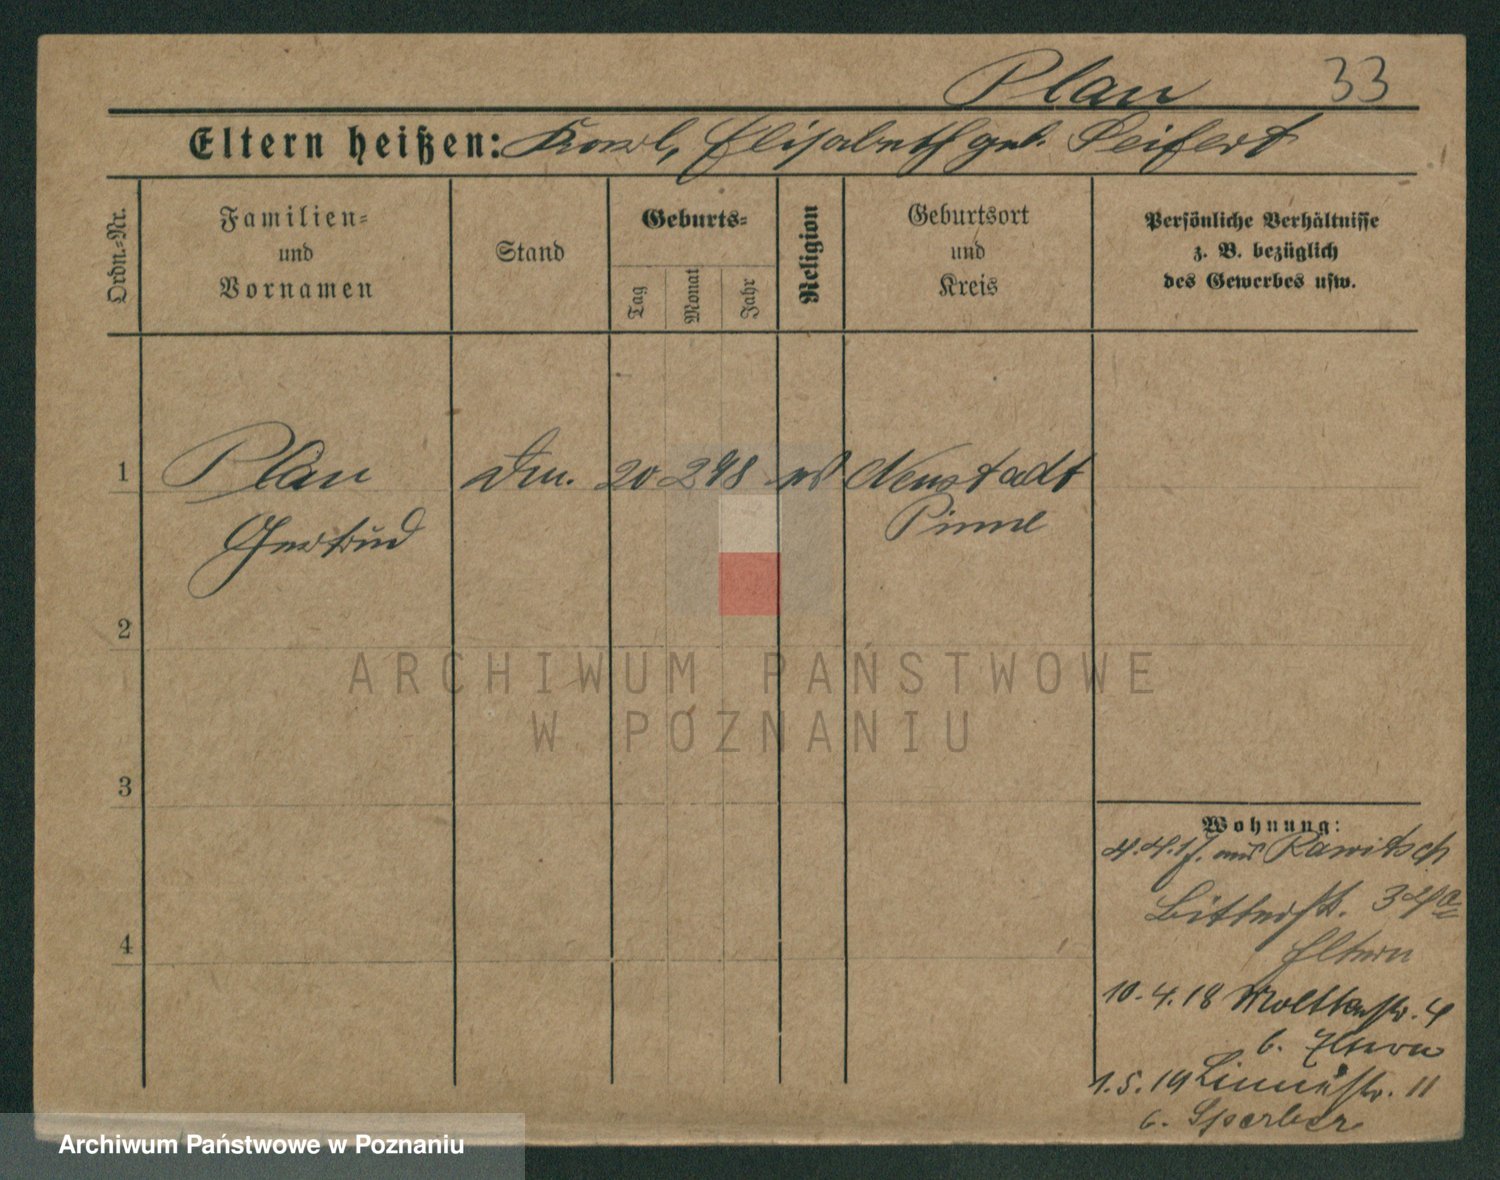 Plan 33
Eltern heißen: Karl, Elisabeth geb. Seifert
Ordn.-Nr.
Familien-
und
Vornamen
Stand
Geburts-
Tag
Monat
Jahr
Religion
Geburtsort
und
Kreis
Persönliche Verhältnisse
z. B. bezüglich
des Gewerbes usw.
1 Plan 20 2 98 Neustadt
Gertrud Pinne
2
3
4
Wohnung:
4.4.17. aus Rawitsch
Bitterstr. 34a
Eltern
10.4.18 Moltkestr. 4
b. Eltern
1.5.19 Linnéstr. 11
b. Sperber
ARCHIWUM PAŃSTWOWE
W POZNANIU
Archiwum Państwowe w Poznaniu